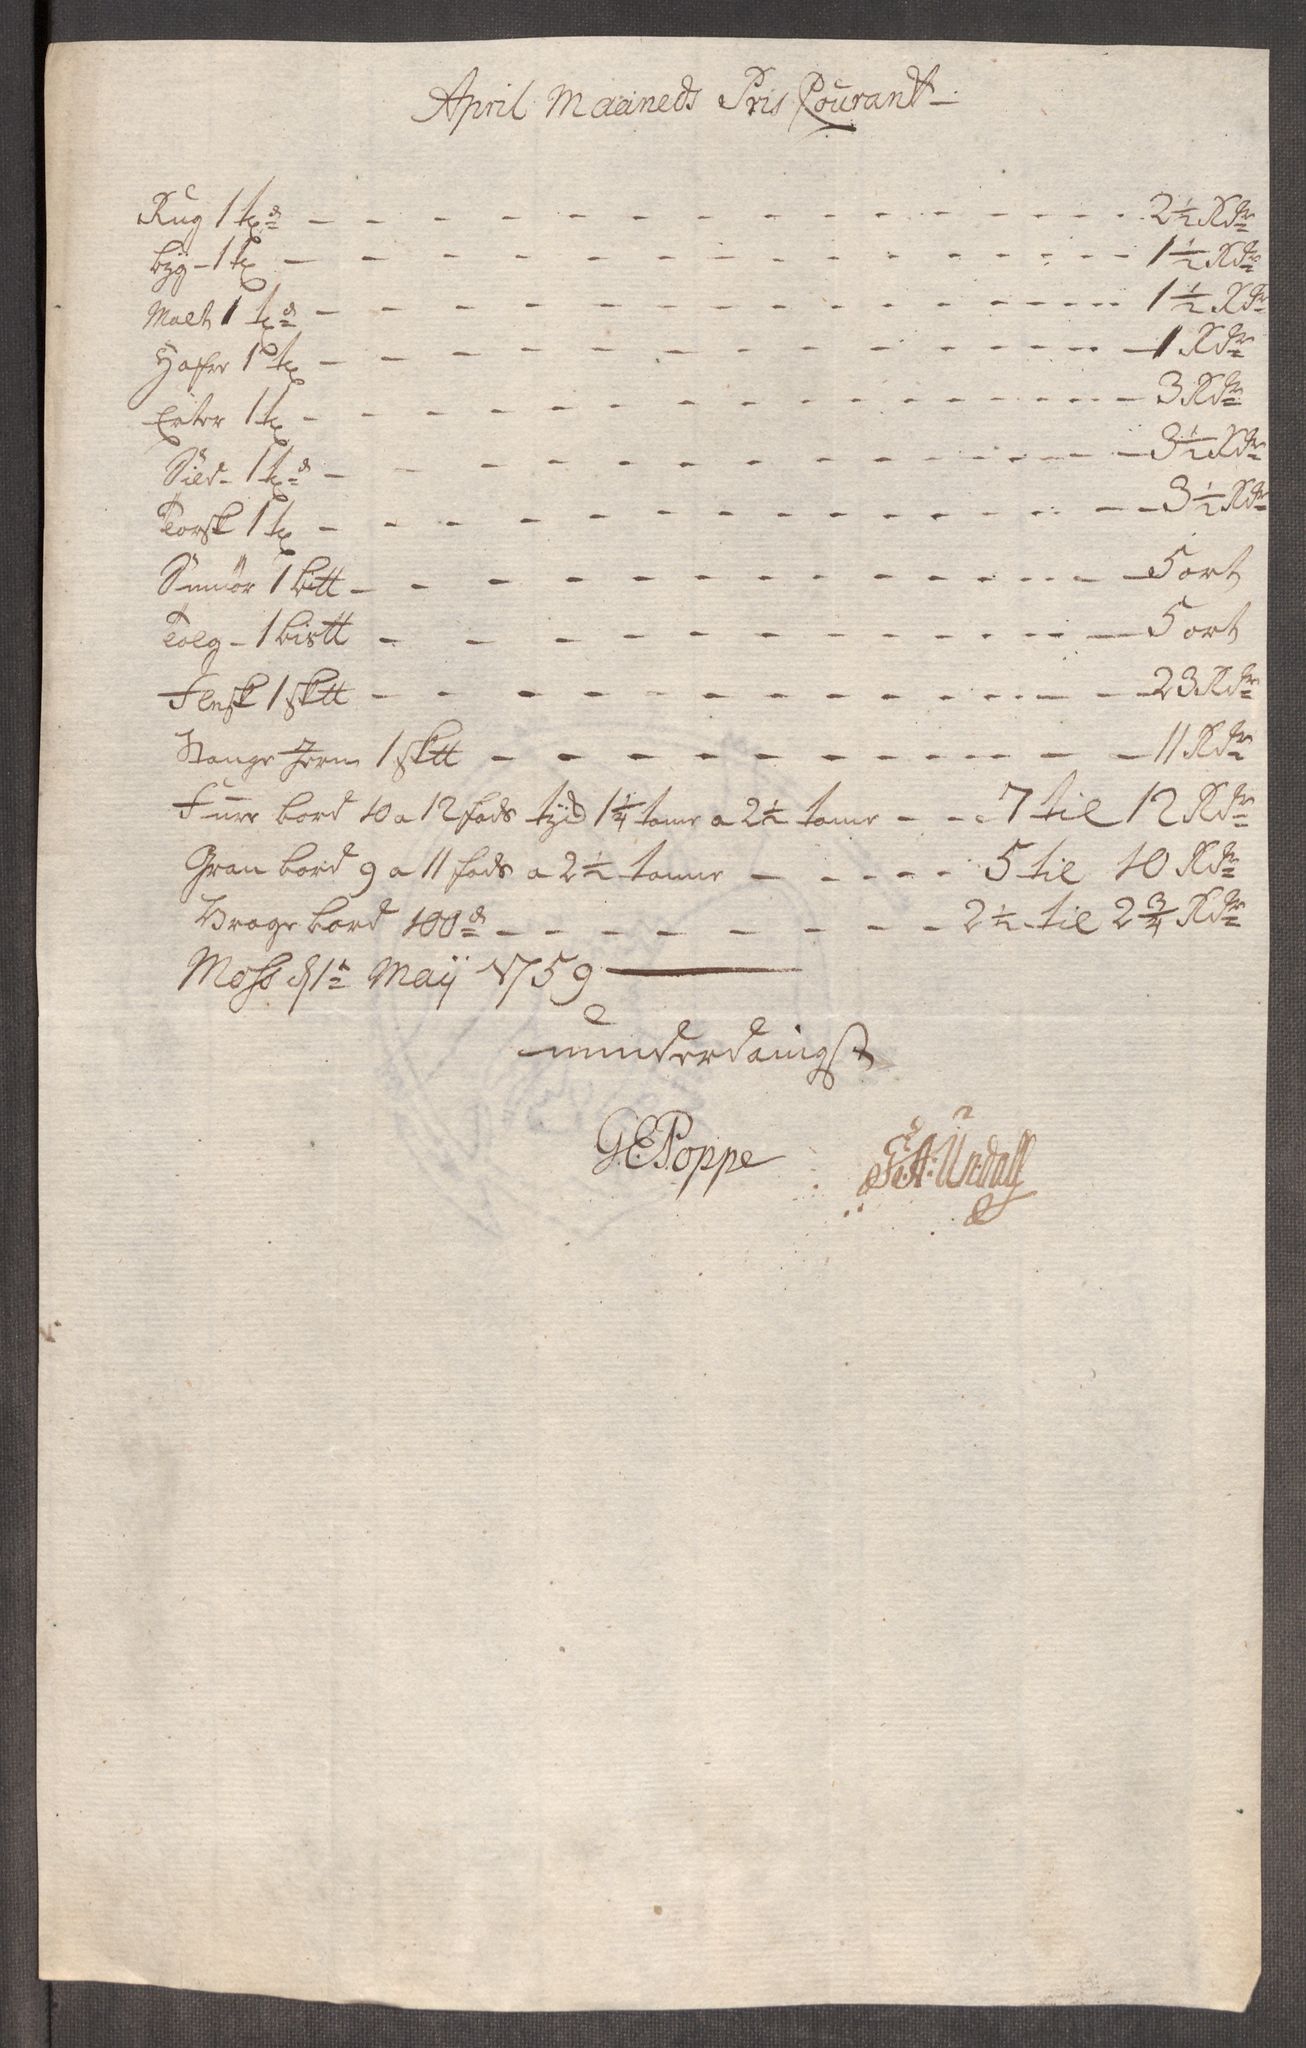 April Maaneds Pris Courant
Rug 1 td - 2½ Rdr
byg - 1 t - 1½ Rdr
Malt 1 td - 1½ Rdr
Hafre 1 t - 1 Rdr
Erter 1 t - 3 Rdr
Sild - 1 td - 3½ Rdr
Torsk 1 t - 3½ Rdr
Smiör 1 btt - 5 ort
Tolg - 1 bistt - 5 ort
Flesk 1 sktt - 23 Rdr
Stange Jern 1 sktt - 11 Rdr
Fure bord 10 a 12 fods tyk 1¼ tome a 2½ tome - 7 til 12 Rdr
Gran bord 9 a 11 fods a 2½ tomme - 5 til 10 Rdr
Vrage bord 100d - 2½ til 2¾ Rdr
Moss d 1te Maÿ 1759
underdanigst
G.E. Poppe F: A: Undall